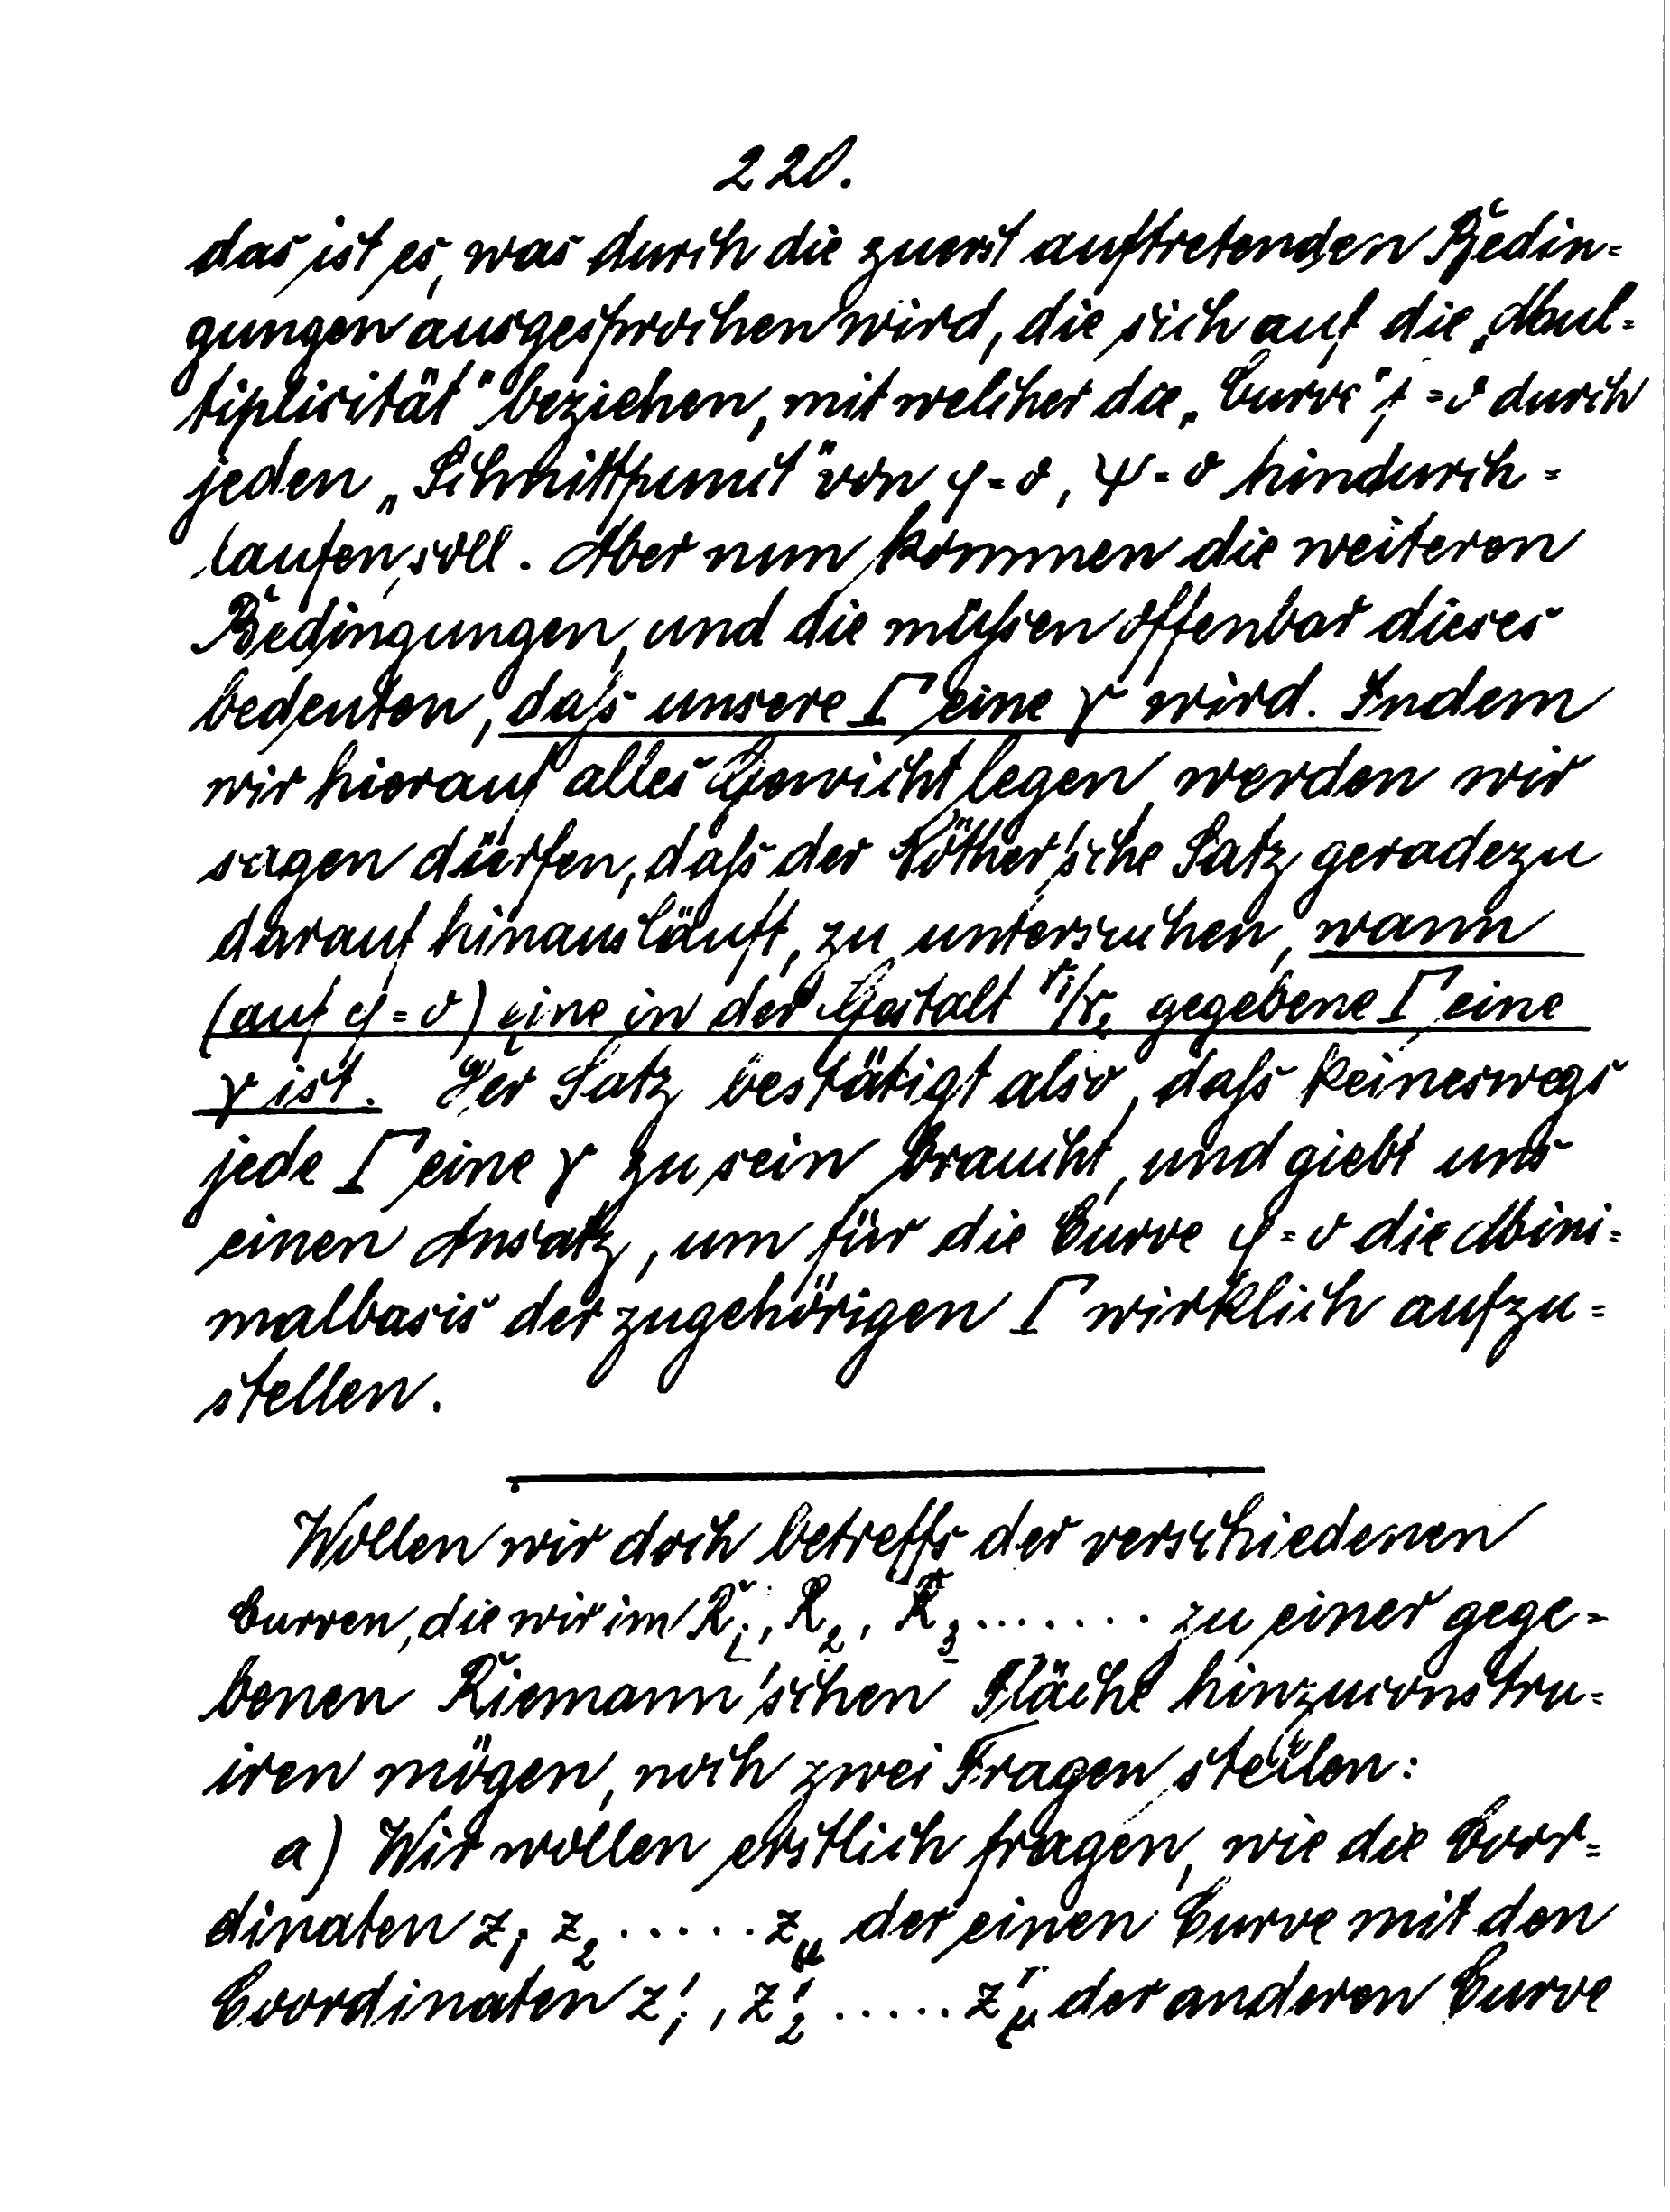 220.
das ist es, was durch die zuerst auftretenden Bedin-
gungen ausgesprochen wird, die sich auf die „Mul-
tiplicität" beziehen, mit welcher die „Curve" f = 0 durch
jeden „Schnittpunct" von φ = 0, ψ = 0 hindurch-
laufen soll. Aber nun kommen die weiteren
Bedingungen, und die müssen offenbar dieses
bedeuten, dass unsere Γ eine γ wird. Indem
wir hierauf alles Gewicht legen, werden wir
sagen dürfen, dass der Nöther'sche Satz geradezu
darauf hinausläuft, zu untersuchen, wann
(auf φ = 0) eine in der Gestalt γ₁/γ₂ gegebene Γ eine
γ ist. Der Satz bestätigt also, dass keineswegs
jede Γ eine γ zu sein braucht, und giebt uns
einen Ansatz, um für die Curve φ = 0 die Mini-
malbasis der zugehörigen Γ wirklich aufzu-
stellen.
Wollen wir doch betreffs der verschiedenen
Curven, die wir im R₁, R₂, R₃ ....... zu einer gege-
benen Riemann'schen Fläche hinzuconstru-
iren mögen, noch zwei Fragen stellen:
a) Wir wollen erstlich fragen, wie die Coor-
dinaten z₁ z₂ ..... z_μ der einen Curve mit den
Coordinaten z'₁, z'₂ ..... z'_μ der anderen Curve